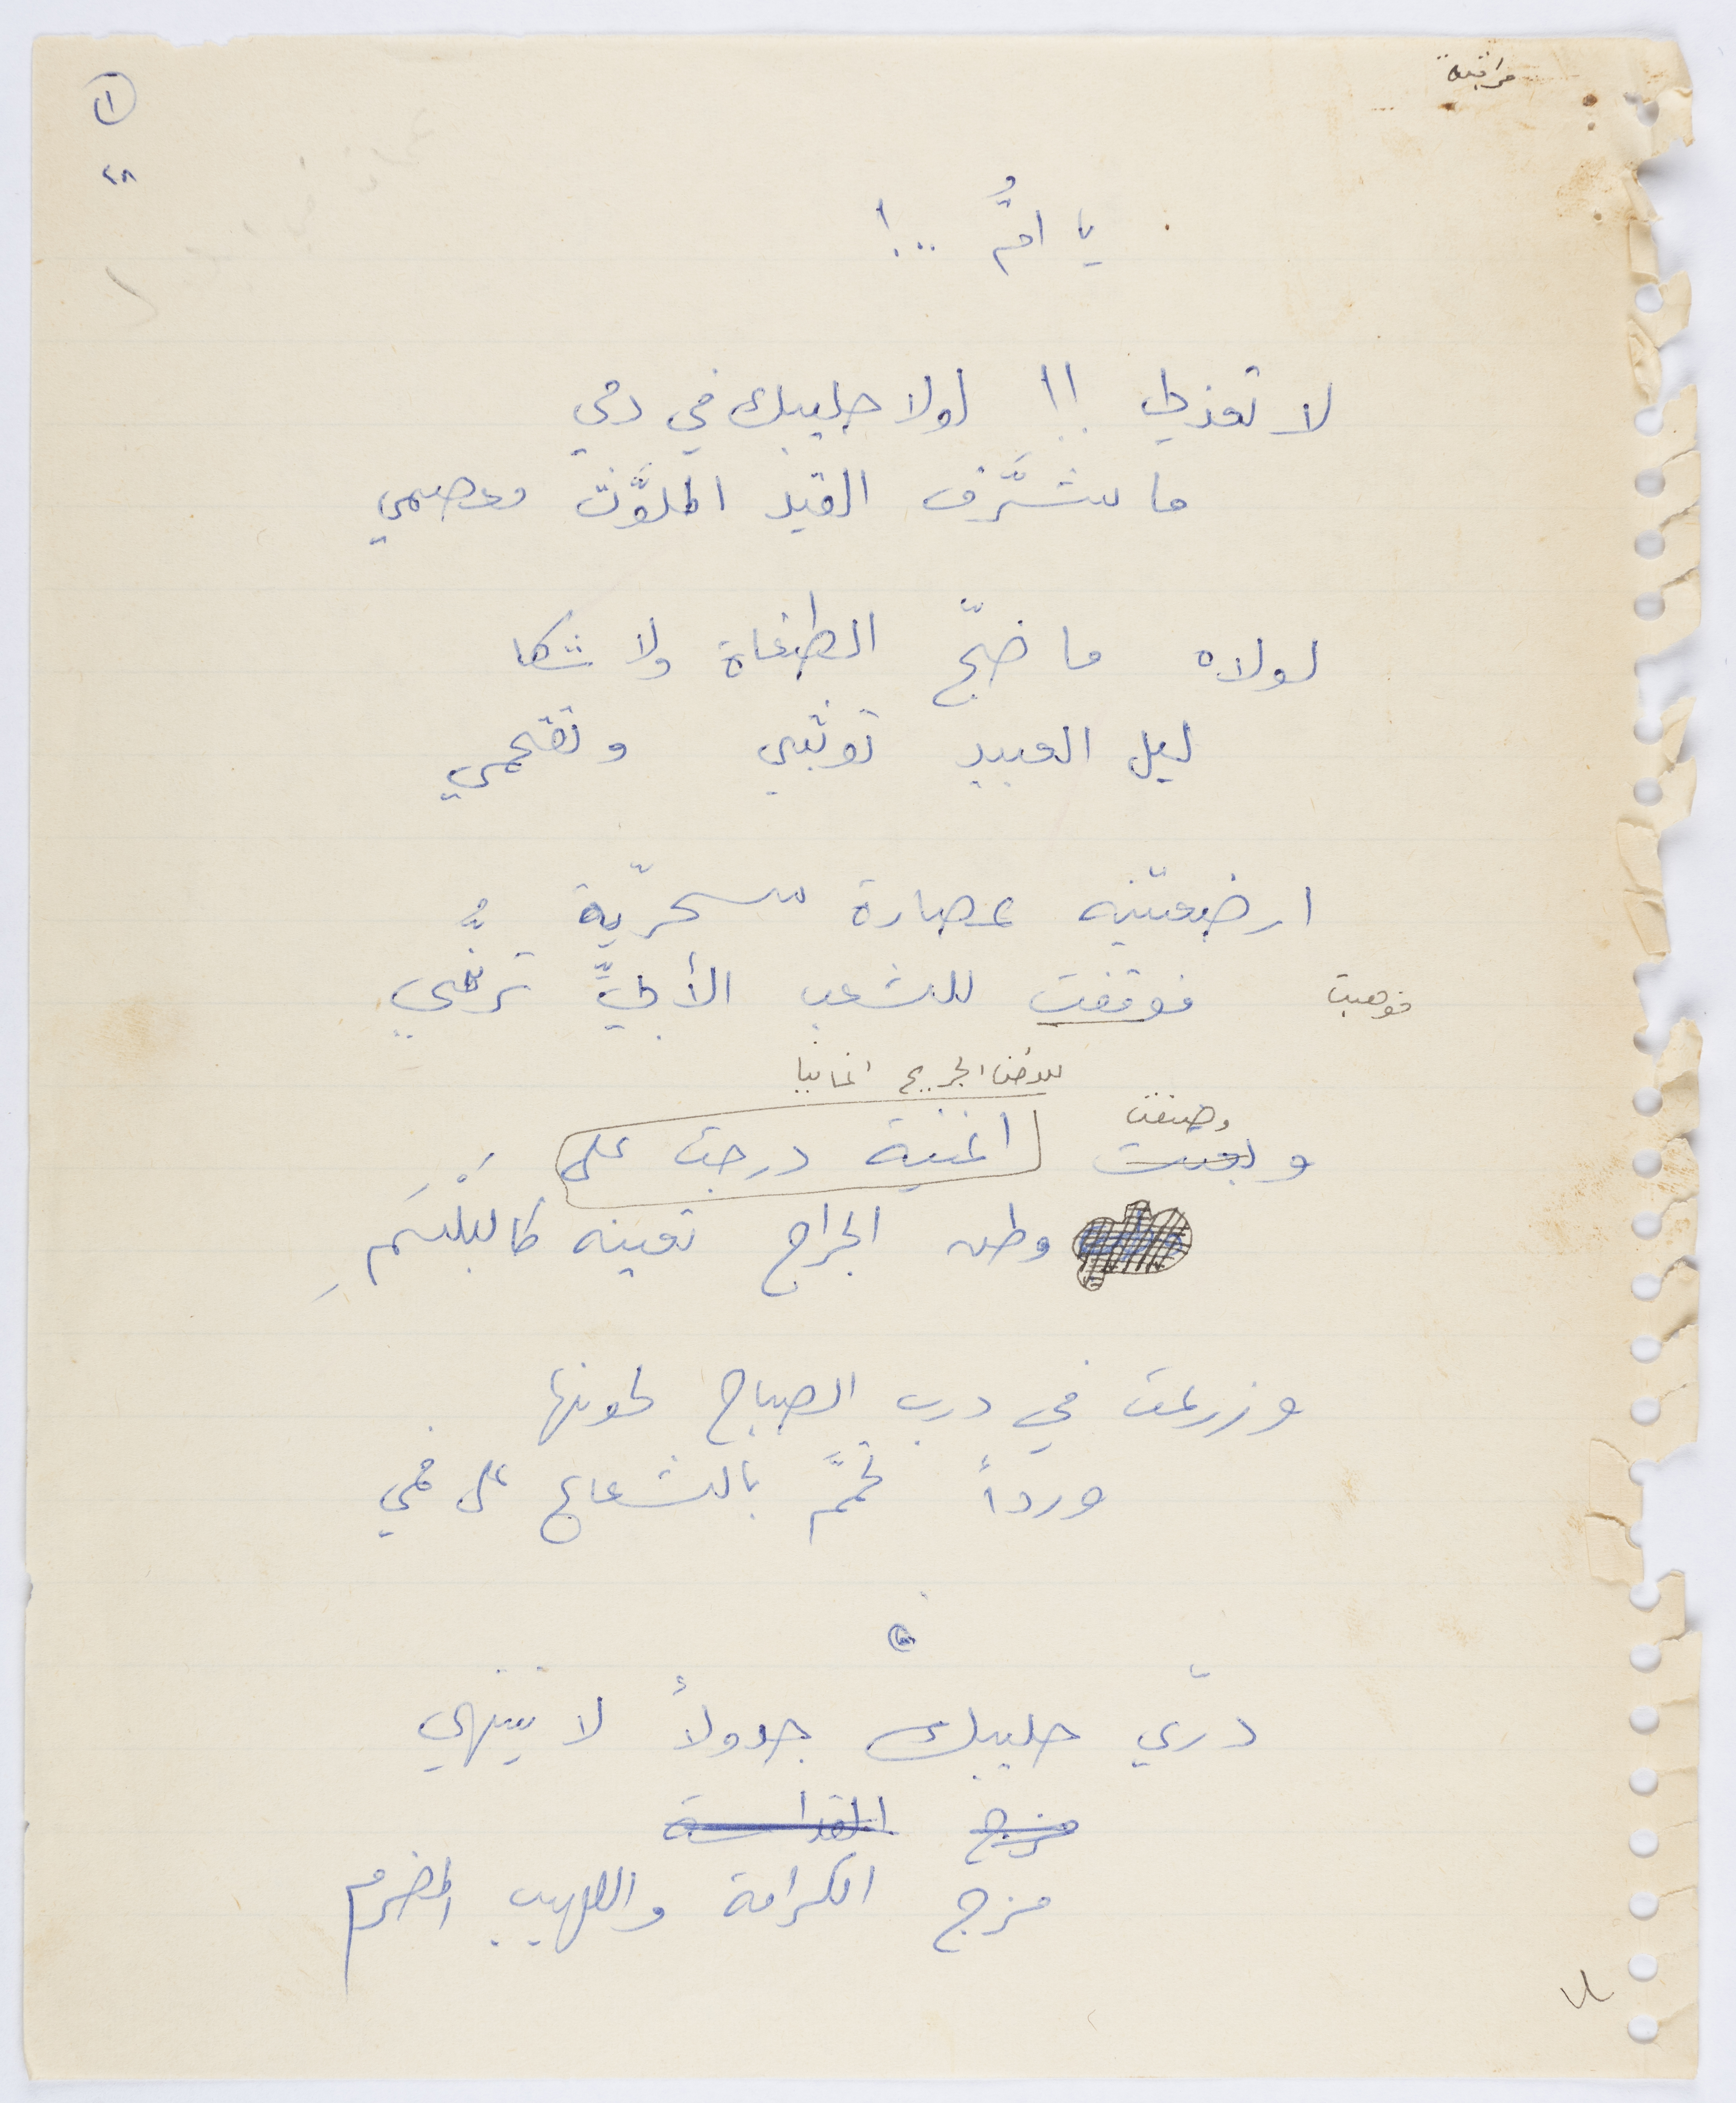 مراقبة
١
٢٨
يا امُّ ..!
لا تعذلي !! لولا حليبك في دمي
ما شرَّف القيد الملوَّث معصمي
لولاه ما ضجّ الطغاة ولا شكا
ليل العبيد توثبي وتقحمي
ارضعتنيه عصارة سحرّية
فوقفت للشعب الأبيِّ ترنُّمي
فوهبت
للوطن الجريح اغانيا
وصنعت
وبعثت اغنية درجت على
وطن الجراح تعينه كالبلْسَمِ
وزرعت في درب الصباح لحونها
ورداً تحمَّم بالشعاع على فمي
درّي حليبك جدولاً لا ينتهي
مزج القداسة
مزج الكرامة واللهيب المضرم